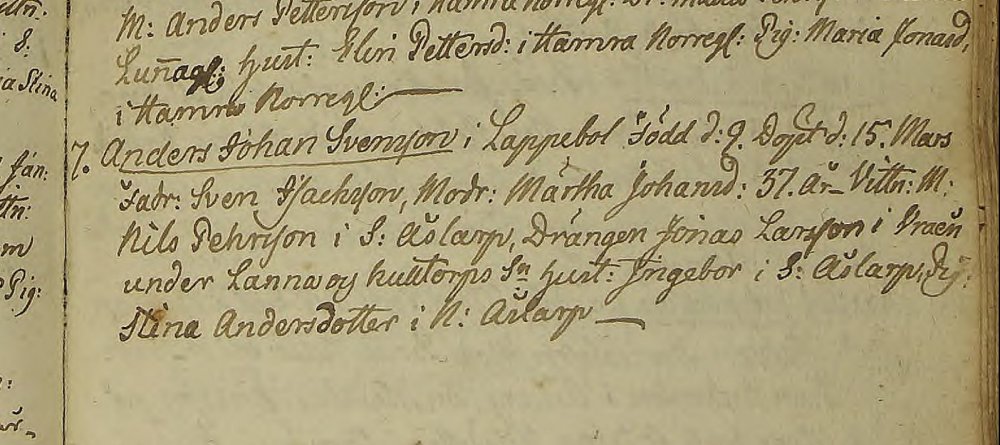 M: Anders Petterson i Hamra Norregl:
Lunnagl: Hust: Elin Pettersd: i Hamra Norregl: Pig: Maria Jonasd,
S:
ja Stina
i Hamra Norregl:
7. Anders Johan Svenson i Lappebol Född d: 9. Döpt d: 15. Mars
Jån:
Fadr: Sven Isachson, Modr: Märtha Johansd: 37. År_ Vittn: M:
ttn:
Nils Pehrson i S: Åslarp, Drängen Jonas Larsson i Vraën
m
under Lanna oy hulltorps Sn Hust: Ingebor i S: Åslarp, Pig:
Pig:
Stina Andersdotter i N: Åslarp